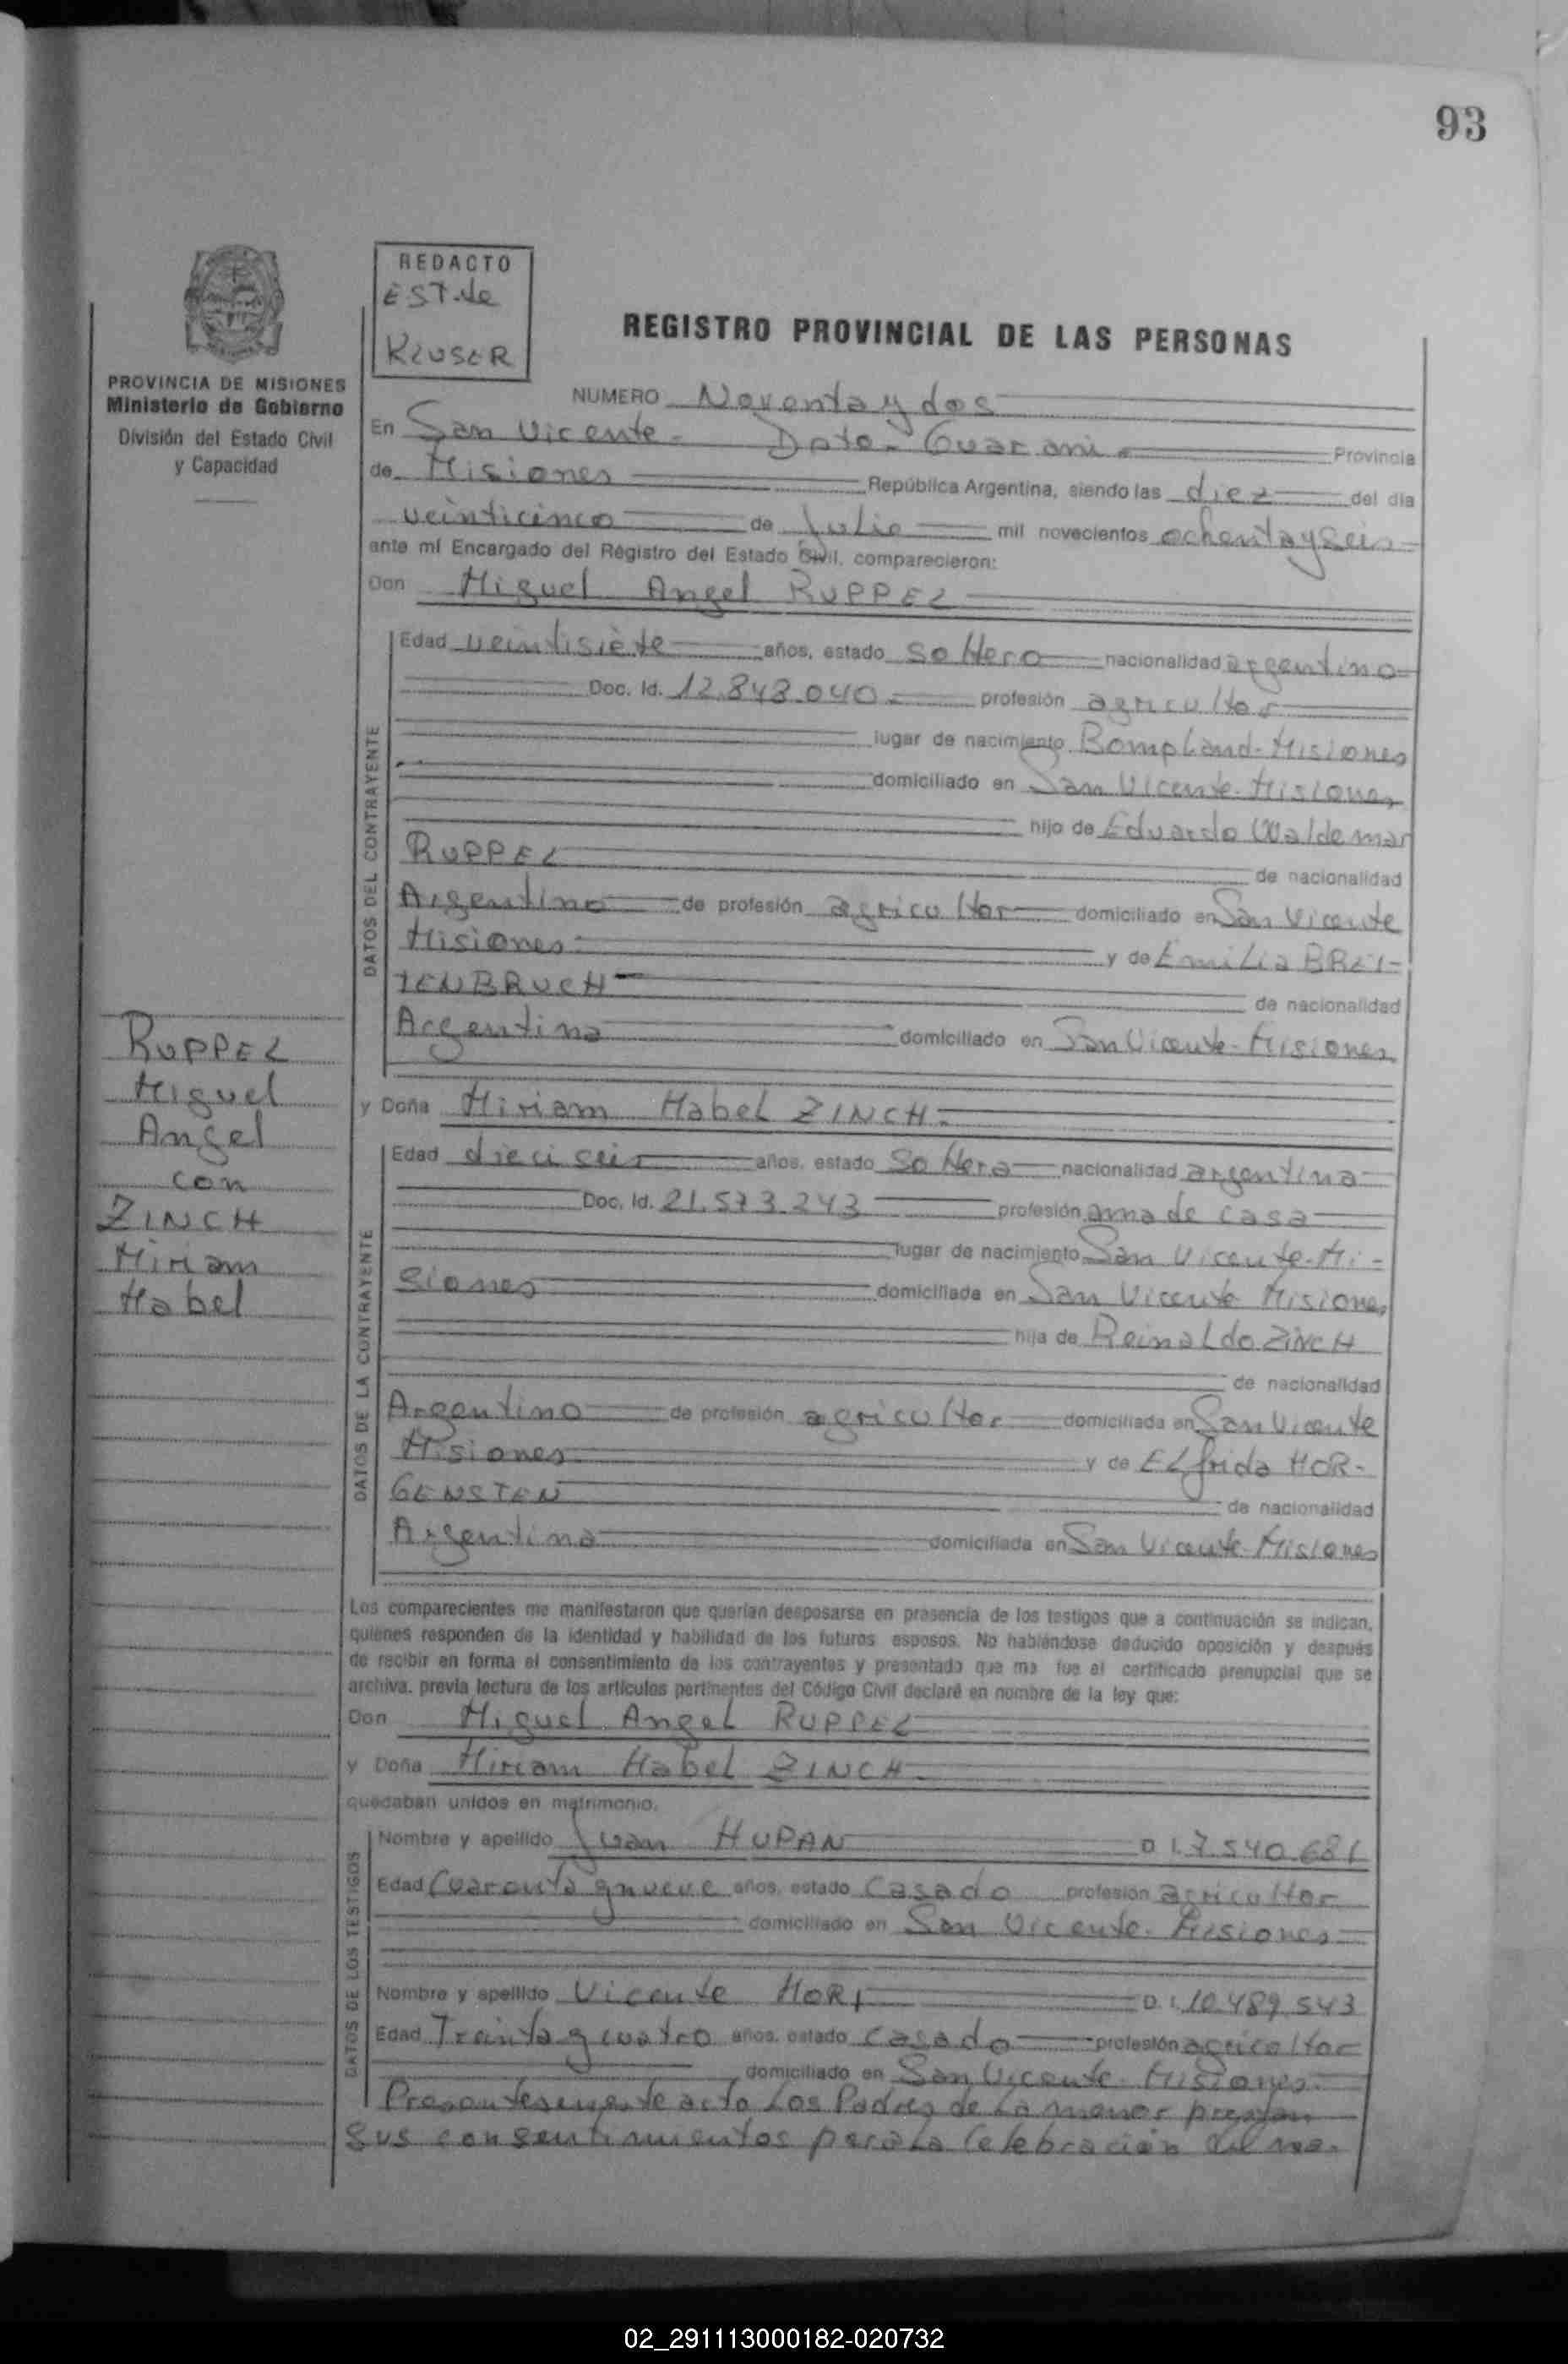 93
REDACTO
EST. de
KLUSER
REGISTRO PROVINCIAL DE LAS PERSONAS
PROVINCIA DE MISIONES
Ministerio de Gobierno
División del Estado Civil
y Capacidad
NUMERO Noventa y dos
En San Vicente - Dpto - Guarani - Provincia
de Misiones República Argentina, siendo las diez del dia
veinticinco de Julio mil novecientos ochenta y seis
ante mí Encargado del Registro del Estado Civil, comparecieron:
Don Miguel Angel RUPPEL
DATOS DEL CONTRAYENTE
Edad veintisiete años, estado soltero nacionalidad argentino
Doc. Id. 12.843.040 - profesión agricultor
lugar de nacimiento Bompland - Misiones
domiciliado en San Vicente - Misiones
hijo de Eduardo Waldemar
RUPPEL de nacionalidad
Argentino de profesión agricultor domiciliado en San Vicente
Misiones - y de Emilia BREI-
TENBRUCH de nacionalidad
Argentina domiciliado en San Vicente - Misiones
RUPPEL
Miguel
Angel
con
ZINCH
Miriam
Mabel
y Doña Miriam Mabel ZINCH -
DATOS DE LA CONTRAYENTE
Edad dieciseis años, estado soltera nacionalidad argentina
Doc. Id. 21.573.243 profesión ama de casa
lugar de nacimiento San Vicente - Mi-
siones domiciliada en San Vicente Misiones
hija de Reinaldo ZINCH
de nacionalidad
Argentino de profesión agricultor domiciliada en San Vicente
Misiones y de Elfrida MOR-
GENSTEN de nacionalidad
Argentina domiciliada en San Vicente - Misiones
Los comparecientes me manifestaron que querían desposarse en presencia de los testigos que a continuación se indican,
quienes responden de la identidad y habilidad de los futuros esposos. No habiéndose deducido oposición y después
de recibir en forma el consentimiento de los contrayentes y presentado que me fue el certificado prenupcial que se
archiva, previa lectura de los artículos pertinentes del Código Civil declaré en nombre de la ley que:
Don Miguel Angel RUPPEL
y Doña Miriam Mabel ZINCH -
quedaban unidos en matrimonio.
DATOS DE LOS TESTIGOS
Nombre y apellido Juan HUPAN D.I. 7.540.681
Edad Cuarenta y nueve años, estado casado profesión agricultor
domiciliado en San Vicente - Misiones
Nombre y apellido Vicente MORI D.I. 10.489.543
Edad Treinta y cuatro años, estado casado profesión agricultor
domiciliado en San Vicente - Misiones -
Presentes en este acto Los Padres de La menor prestan
sus consentimientos para La Celebración del ma-
02_291113000182-020732